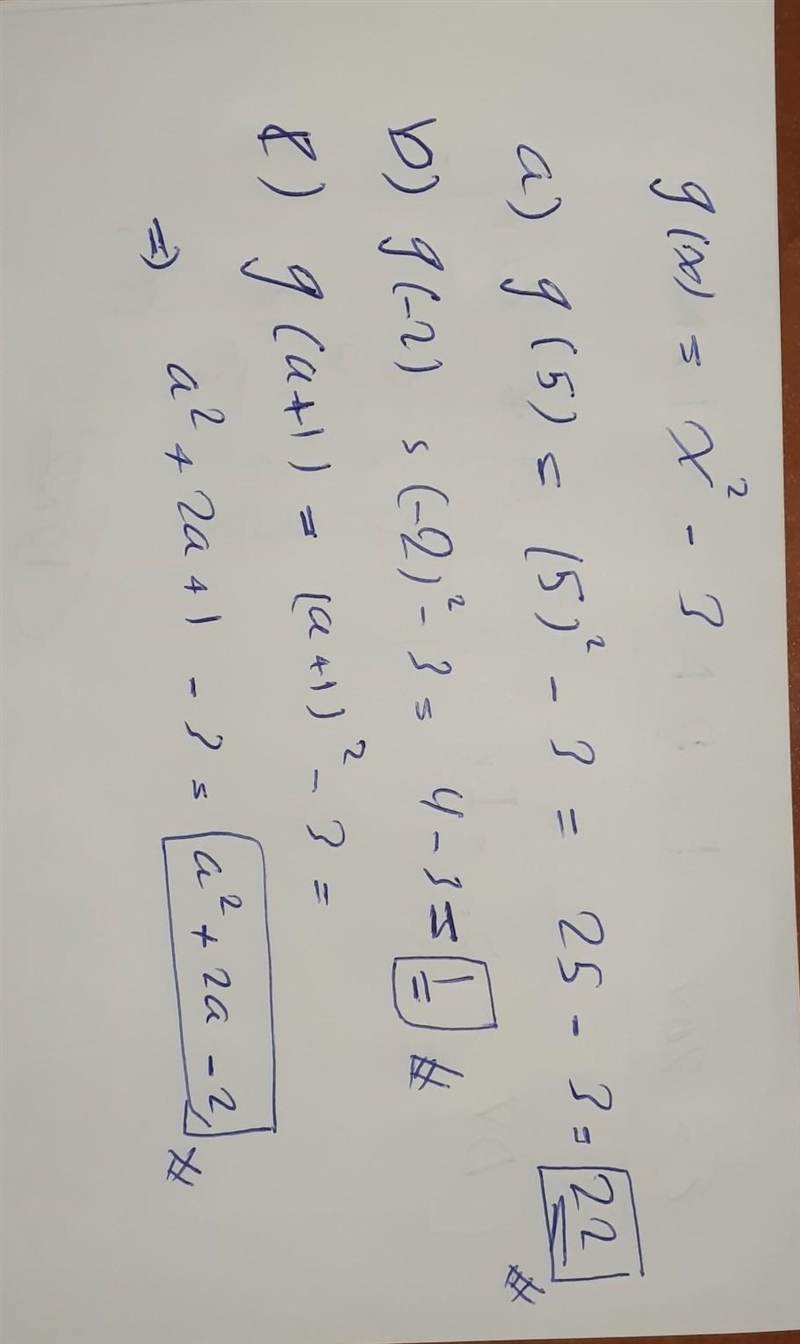 g(x) = x² - 3
a) g(5) = (5)² - 3 = 25 - 3 = 22 #
b) g(-2) = (-2)² - 3 = 4 - 3 = 1 #
c) g(a+1) = (a+1)² - 3 =
=) a² + 2a + 1 - 3 = a² + 2a - 2 #